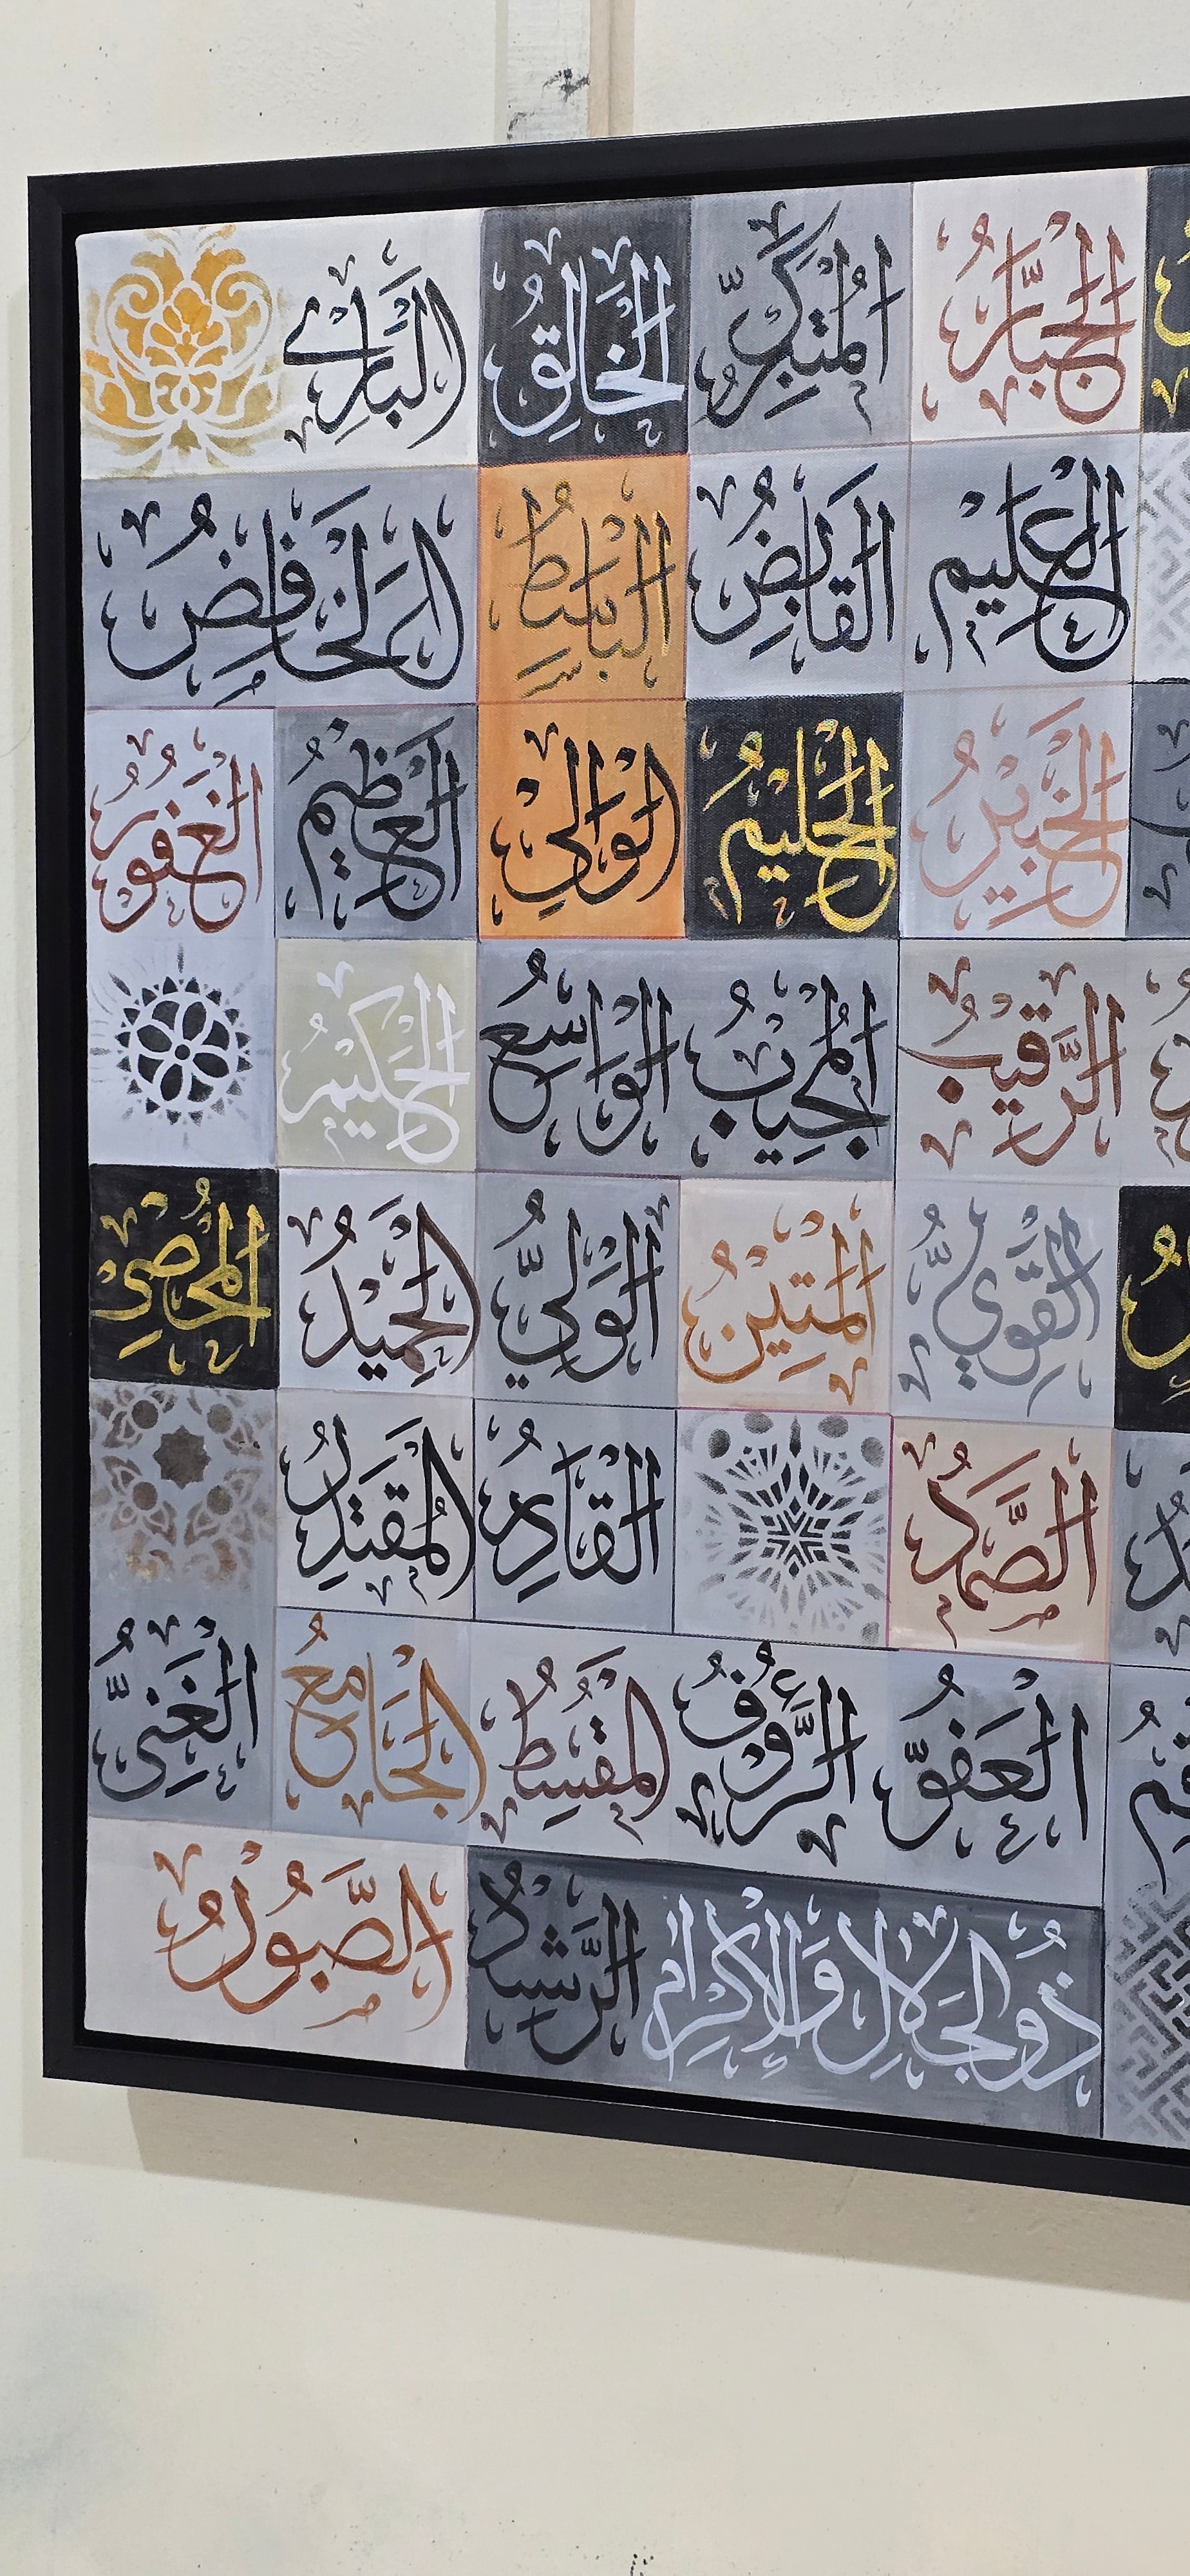 الجبار المتكبر الخالق البارئ
العليم القابض الباسط الخافض
الخبير الحليم الوالي العظيم الغفور
الرقيب المجيب الواسع الحكيم
القوي المتين الولي الحميد المحصي
الصمد القادر المقتدر
العفو الرؤوف المقسط الجامع الغني
ذو الجلال والإكرام الصبور